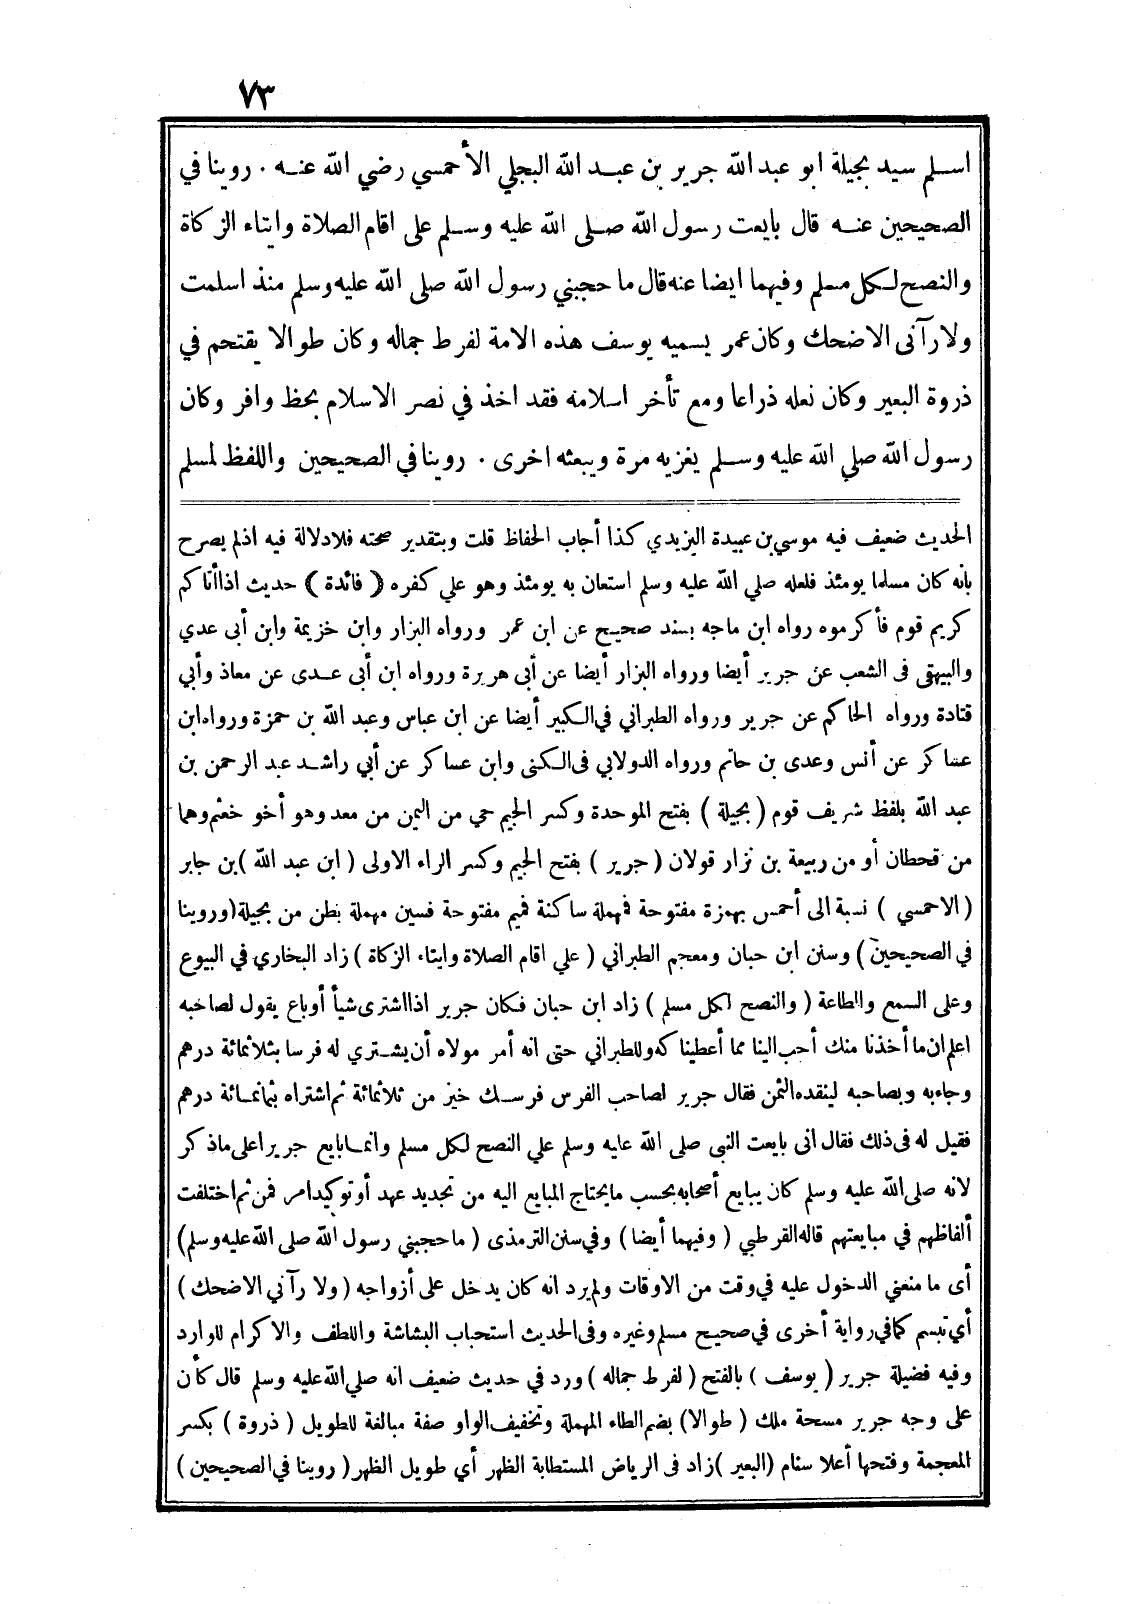 ٧٣
اسلم سيد بجيلة ابو عبد الله جرير بن عبد الله البجلي الأحمسي رضي الله عنه . روينا في
الصحيحين عنه قال بايعت رسول الله صلى الله عليه وسلم على اقام الصلاة وايتاء الزكاة
والنصح لكل مسلم وفيهما ايضا عنه قال ما حجبني رسول الله صلى الله عليه وسلم منذ اسلمت
ولا رآنى الاضحك وكان عمر يسميه يوسف هذه الامة لفرط جماله وكان طوالا يقتحم في
ذروة البعير وكان نعله ذراعا ومع تأخر اسلامه فقد اخذ في نصر الاسلام بحظ وافر وكان
رسول الله صلي الله عليه وسلم يغزيه مرة ويبعثه اخرى . روينا في الصحيحين واللفظ لمسلم
الحديث ضعيف فيه موسي بن عبيدة اليزيدي كذا أجاب الحفاظ قلت وبتقدير صحته فلا دلالة فيه اذ لم يصرح
بانه كان مسلما يومئذ فلعله صلي الله عليه وسلم استعان به يومئذ وهو علي كفره ( فائدة ) حديث اذا أتاكم
كريم قوم فأكرموه رواه ابن ماجه بسند صحيح عن ابن عمر ورواه البزار وابن خزيمة وابن أبى عدي
والبيهقى فى الشعب عن جرير أيضا ورواه البزار أيضا عن أبى هريرة ورواه ابن أبى عدى عن معاذ وأبي
قتادة ورواه الحاكم عن جرير ورواه الطبراني في الكبير أيضا عن ابن عباس وعبد الله بن حمزة ورواه ابن
عساكر عن أنس وعدى بن حاتم ورواه الدولابي فى الكنى وابن عساكر عن أبي راشد عبد الرحمن بن
عبد الله بلفظ شريف قوم ( بجيلة ) بفتح الموحدة وكسر الجيم حي من اليمن من معد وهو أخو خثعم وهما
من قحطان أو من ربيعة بن نزار قولان ( جرير ) بفتح الجيم وكسر الراء الاولى ( ابن عبد الله ) بن جابر
( الاحمسي ) نسبة الى أحمس بهمزة مفتوحة فمهملة ساكنة فميم مفتوحة فسين مهملة بطن من بجيلة ( وروينا
في الصحيحين ) وسنن ابن حبان ومعجم الطبراني ( علي اقام الصلاة وايتاء الزكاة ) زاد البخاري في البيوع
وعلى السمع والطاعة ( والنصح لكل مسلم ) زاد ابن حبان فكان جرير اذا اشترى شيأ أو باع يقول لصاحبه
اعلم ان ما أخذنا منك أحب الينا مما أعطيناكه وللطبراني حتى انه أمر مولاه أن يشتري له فرسا بثلاثمائة درهم
وجاءبه وبصاحبه لينقده الثمن فقال جرير لصاحب الفرس فرسك خير من ثلاثمائة ثم اشتراه بثمانمائة درهم
فقيل له فى ذلك فقال انى بايعت النبى صلى الله عليه وسلم علي النصح لكل مسلم وانما بايع جرير اعلى ماذكر
لانه صلى الله عليه وسلم كان يبايع أصحابه بحسب مايحتاج المبايع اليه من تجديد عهد أو توكيد امر فمن ثم اختلفت
ألفاظهم في مبايعتهم قاله القرطبي ( وفيهما أيضا ) وفي سنن الترمذى ( ما حجبني رسول الله صلى الله عليه وسلم )
أى ما منعني الدخول عليه في وقت من الاوقات ولم يرد انه كان يدخل على أزواجه ( ولا رآني الاضحك )
أي تبسم كما في رواية أخرى في صحيح مسلم وغيره وفى الحديث استحباب البشاشة واللطف والاكرام للوارد
وفيه فضيلة جرير ( يوسف ) بالفتح ( لفرط جماله ) ورد في حديث ضعيف انه صلي الله عليه وسلم قال كأن
على وجه جرير مسحة ملك ( طوالا ) بضم الطاء المهملة وتخفيف الواو صفة مبالغة للطويل ( ذروة ) بكسر
المعجمة وفتحها أعلا سنام ( البعير ) زاد فى الرياض المستطابة الظهر أي طويل الظهر ( روينا في الصحيحين )